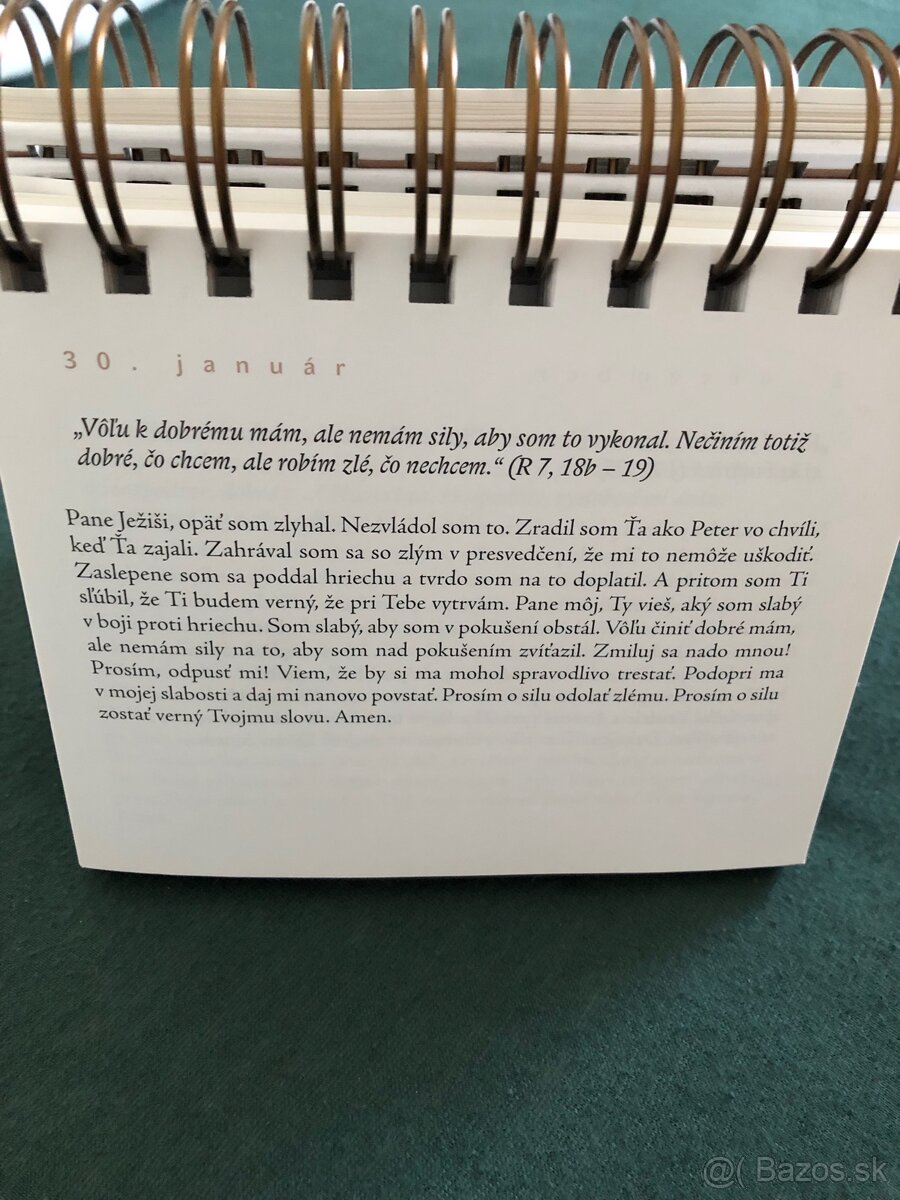 30. január
„Vôľu k dobrému mám, ale nemám sily, aby som to vykonal. Nečiním totiž
dobré, čo chcem, ale robím zlé, čo nechcem.“ (R 7, 18b – 19)
Pane Ježiši, opäť som zlyhal. Nezvládol som to. Zradil som Ťa ako Peter vo chvíli,
keď Ťa zajali. Zahrával som sa so zlým v presvedčení, že mi to nemôže uškodiť.
Zaslepene som sa poddal hriechu a tvrdo som na to doplatil. A pritom som Ti
sľúbil, že Ti budem verný, že pri Tebe vytrvám. Pane môj, Ty vieš, aký som slabý
v boji proti hriechu. Som slabý, aby som v pokušení obstál. Vôľu činiť dobré mám,
ale nemám sily na to, aby som nad pokušením zvíťazil. Zmiluj sa nado mnou!
Prosím, odpusť mi! Viem, že by si ma mohol spravodlivo trestať. Podopri ma
v mojej slabosti a daj mi nanovo povstať. Prosím o silu odolať zlému. Prosím o silu
zostať verný Tvojmu slovu. Amen.
@( Bazos.sk